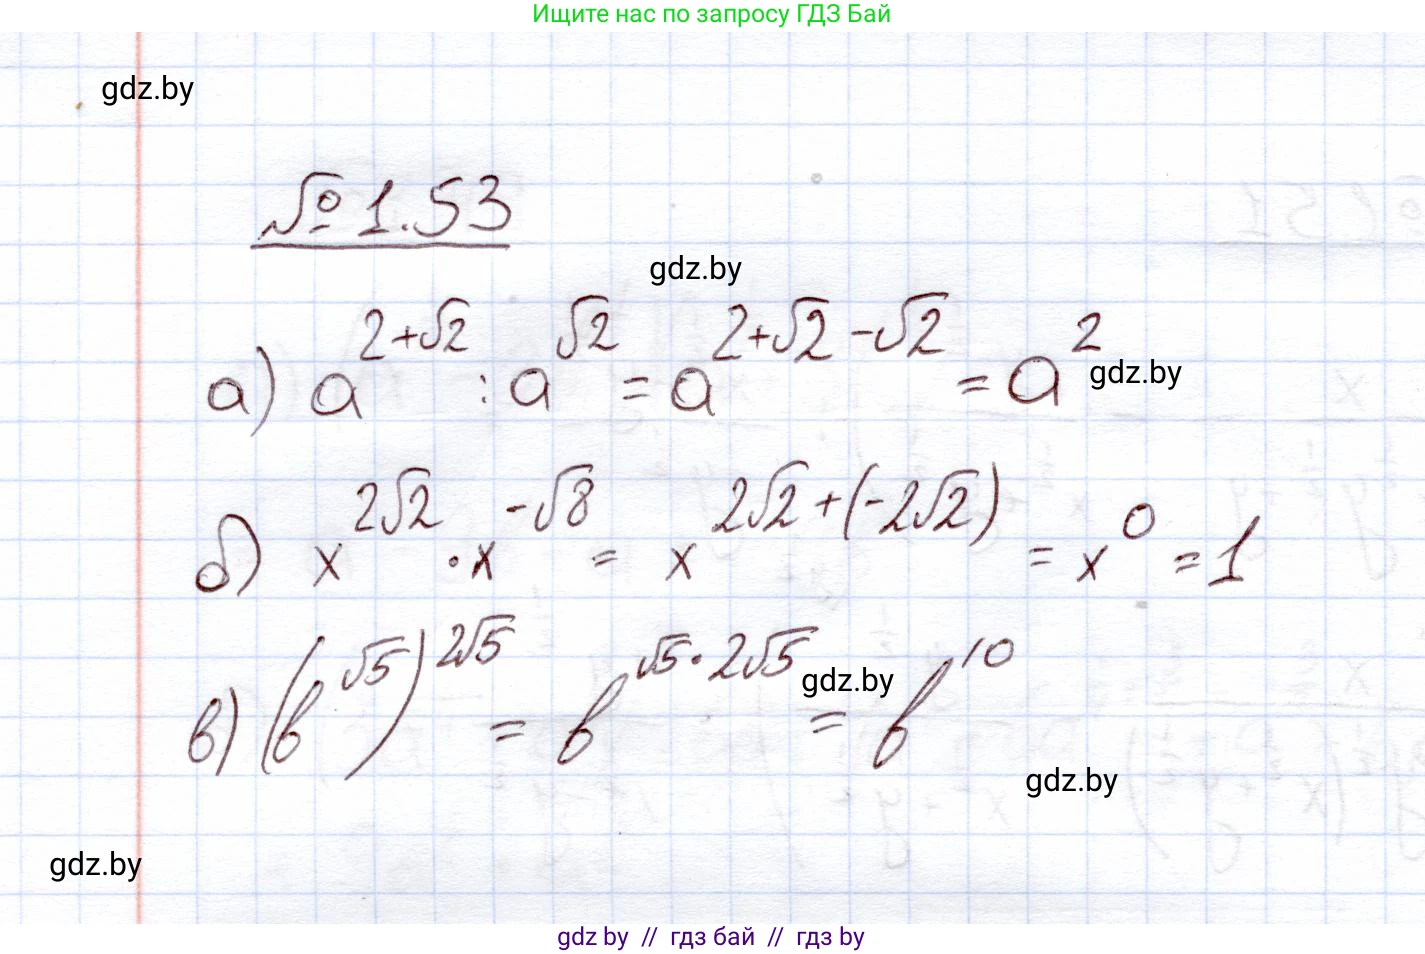 Ищите нас по запросу ГДЗ Бай
gdz.by
№ 1.53
gdz.by
а) a^{2+√2} : a^{√2} = a^{2+√2-√2} = a^2
gdz.by
б) x^{2√2} · x^{-√8} = x^{2√2+(-2√2)} = x^0 = 1
в) (b^{√5})^{2√5} = b^{√5·2√5} = b^{10}
gdz.by
gdz.by
gdz.by
gdz by // гдз бай // гдз by